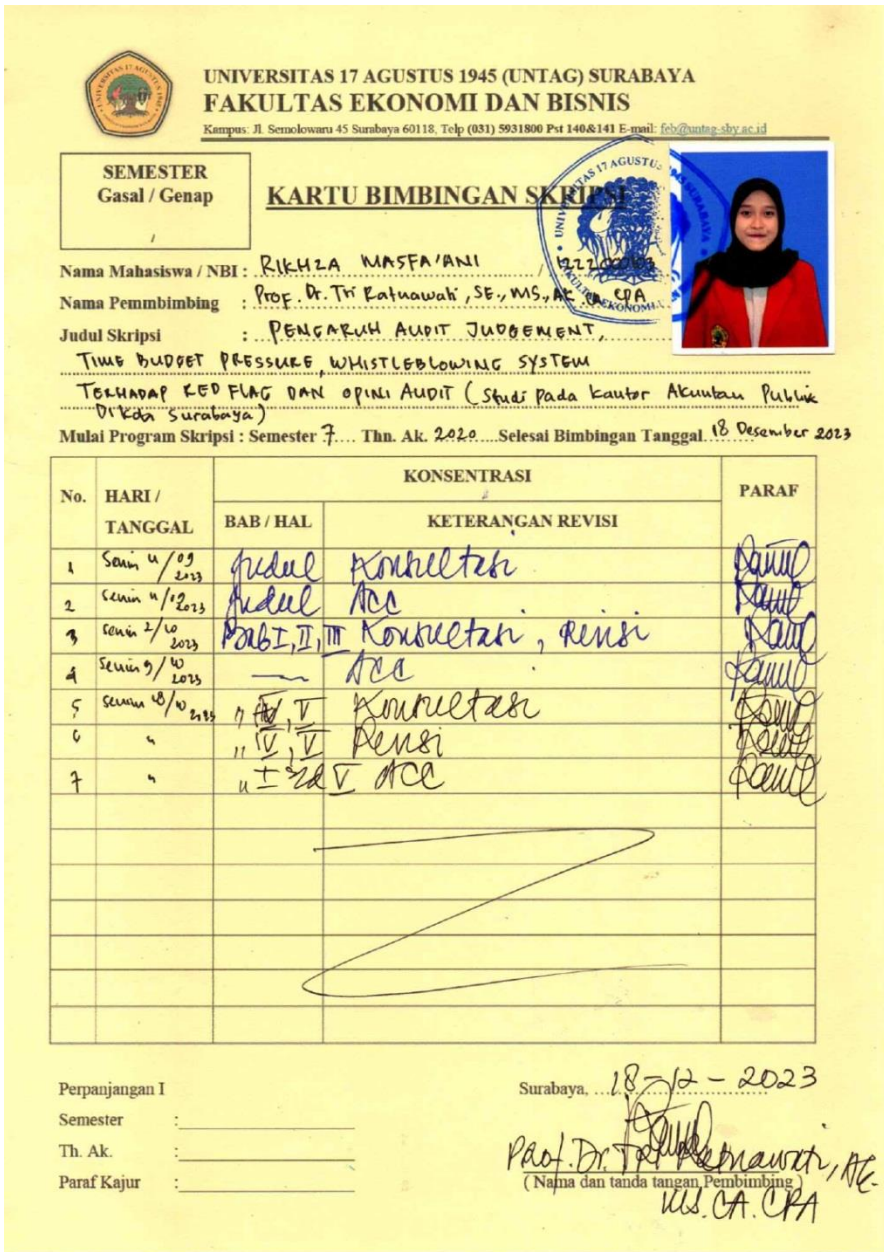 UNIVERSITAS 17 AGUSTUS 1945 (UNTAG) SURABAYA
FAKULTAS EKONOMI DAN BISNIS
Kampus: Jl. Semolowaru 45 Surabaya 60118, Telp (031) 5931800 Pst 140&141 E-mail: feb@untag-sby.ac.id
SEMESTER
Gasal / Genap
/
KARTU BIMBINGAN SKRIPSI
Nama Mahasiswa / NBI : RIKHZA MASFA'ANI /
Nama Pemmbimbing : Prof. Dr. Tri Ratnawati, SE., MS., AK CA CPA
Judul Skripsi : PENGARUH AUDIT JUDGEMENT,
TIME BUDGET PRESSURE, WHISTLEBLOWING SYSTEM
TERHADAP RED FLAG DAN OPINI AUDIT (Studi pada Kantor Akuntan Publik
Di Kota Surabaya)
Mulai Program Skripsi : Semester 7 Thn. Ak. 2020 Selesai Bimbingan Tanggal 18 Desember 2023
No. HARI / TANGGAL KONSENTRASI PARAF
BAB / HAL KETERANGAN REVISI
1 Senin 4/09 2023 Judul Konsultasi
2 Senin 11/09 2023 Judul ACC
3 Senin 2/10 2023 Bab I, II, III Konsultasi, Revisi
4 Senin 9/10 2023 ACC
5 Senin 2023 " IV, V Konsultasi
6 " " IV, V Revisi
7 " " I sd V ACC
Perpanjangan I
Semester :
Th. Ak. :
Paraf Kajur :
Surabaya, 18-12-2023
Prof. Dr. Tri Ratnawati, AK.
(Nama dan tanda tangan Pembimbing)
MS. CA. CPA